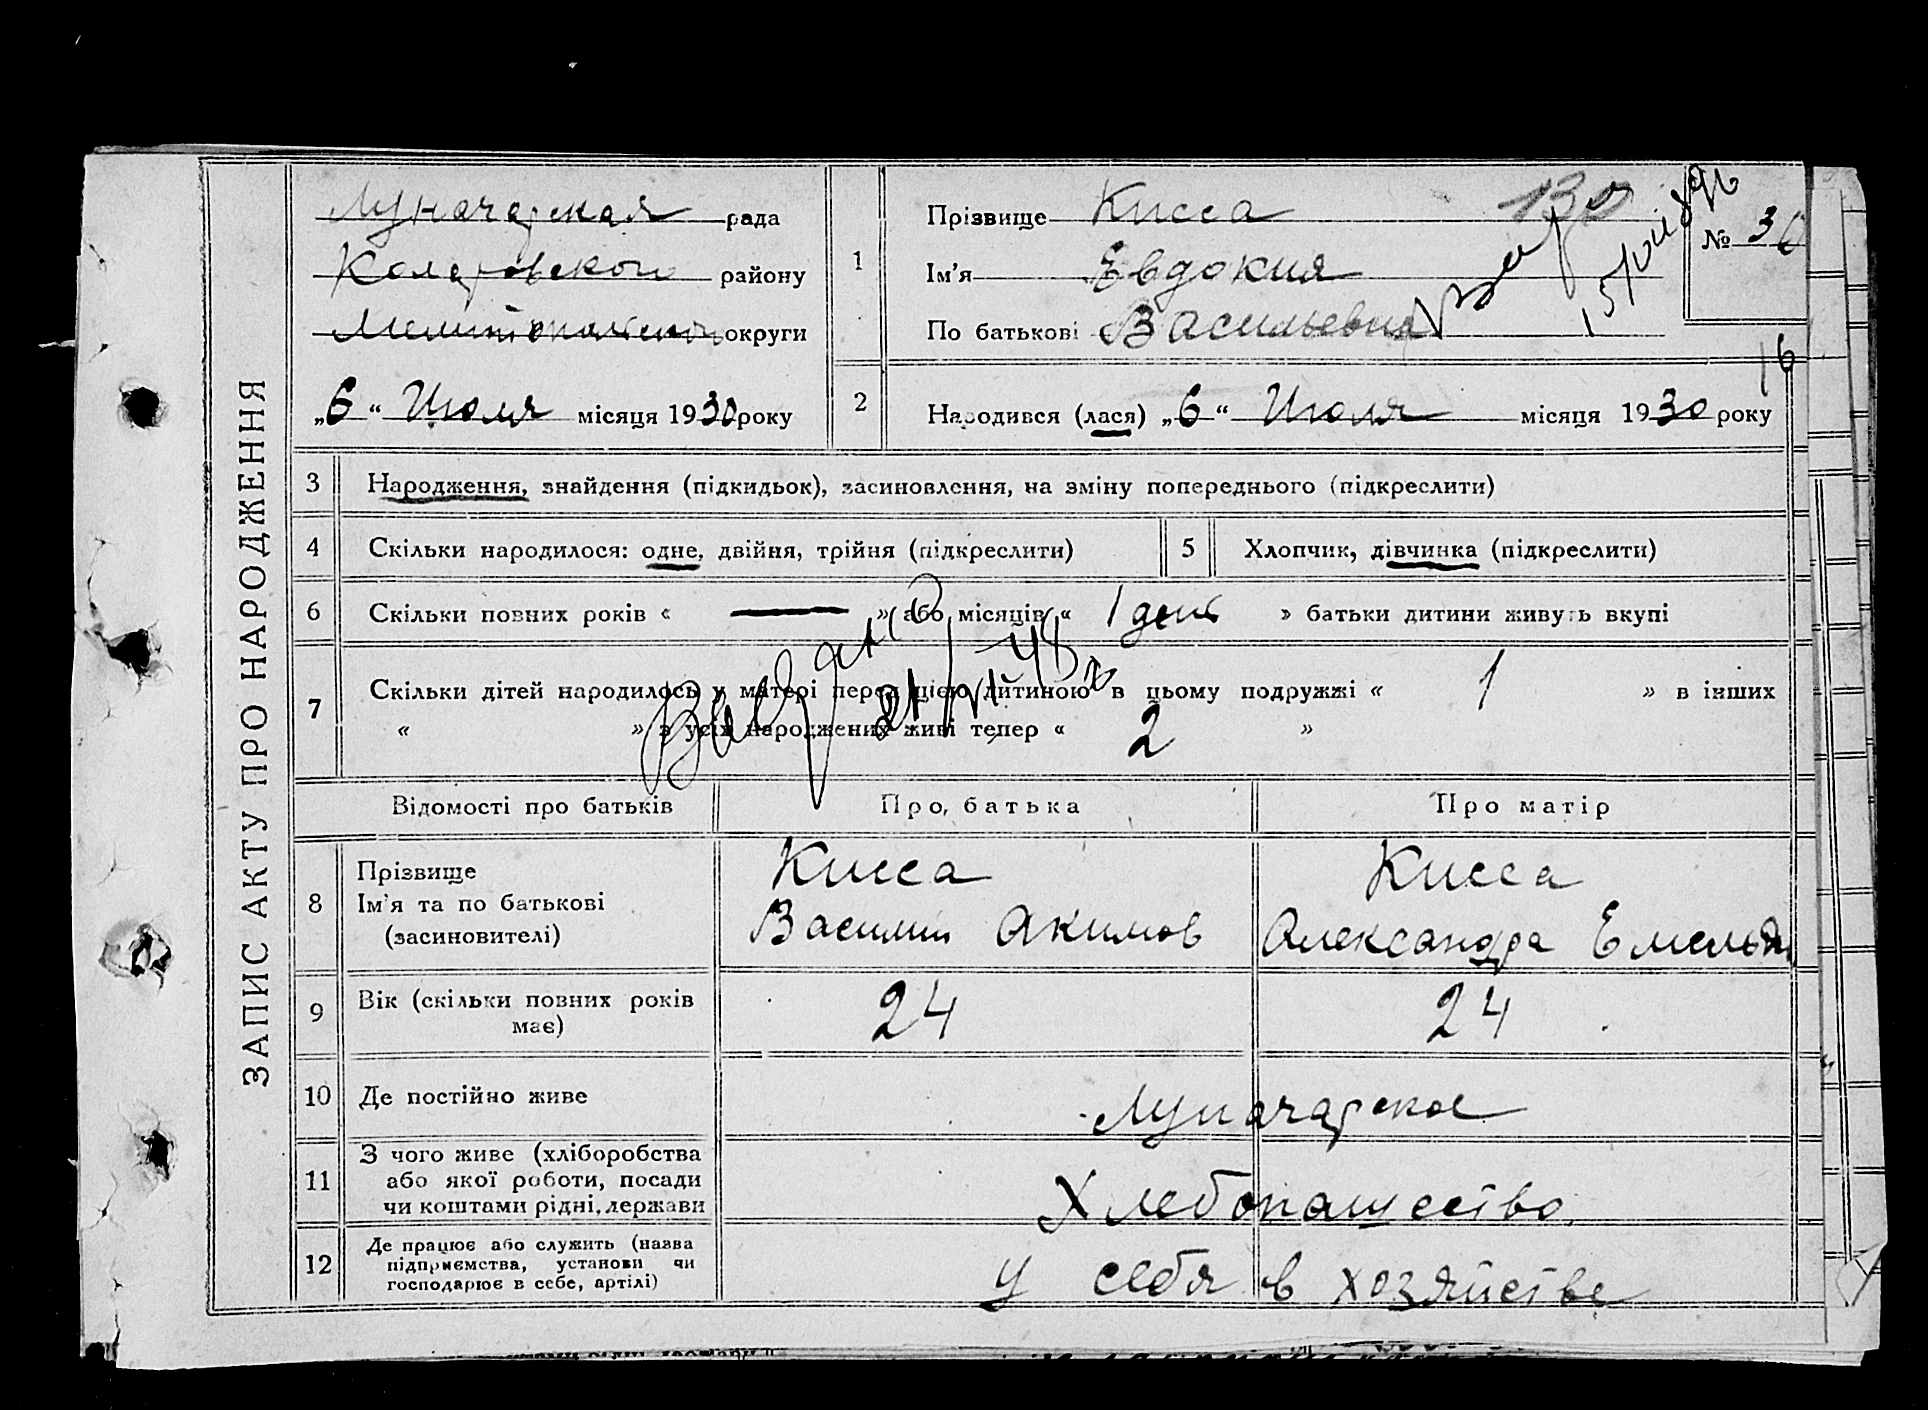 ЗАПИС АКТУ ПРО НАРОДЖЕННЯ
Луначарская рада
Коларовского району
Мелитопольской округи
„6“ Июля місяця 1930 року
1
Прізвище Кисса
Ім'я Евдокия
По батькові Васильевна
130
№ 36
16
2
Народився (лася) „6“ Июля місяця 1930 року
3 Народження, знайдення (підкидьок), засиновлення, на зміну попереднього (підкреслити)
4 Скільки народилося: одне, двійня, трійня (підкреслити)
5 Хлопчик, дівчинка (підкреслити)
6 Скільки повних років « — » або місяців « 1 день » батьки дитини живуть вкупі
7 Скільки дітей народилось у матері перед цією дитиною в цьому подружжі « 1 » в інших
« » з усіх народжених живі тепер « 2 »
21/VI-48
Відомості про батьків
Про батька
Про матір
8 Прізвище
Ім'я та по батькові
(засиновителі)
Кисса
Василий Акимов
Кисса
Александра Емельян
9 Вік (скільки повних років
має)
24
24
10 Де постійно живе
Луначарское
11 З чого живе (хліборобства
або якої роботи, посади
чи коштами рідні, держави
Хлебопашество
12 Де працює або служить (назва
підприємства, установи чи
господарює в себе, артілі)
у себя в хозяйстве